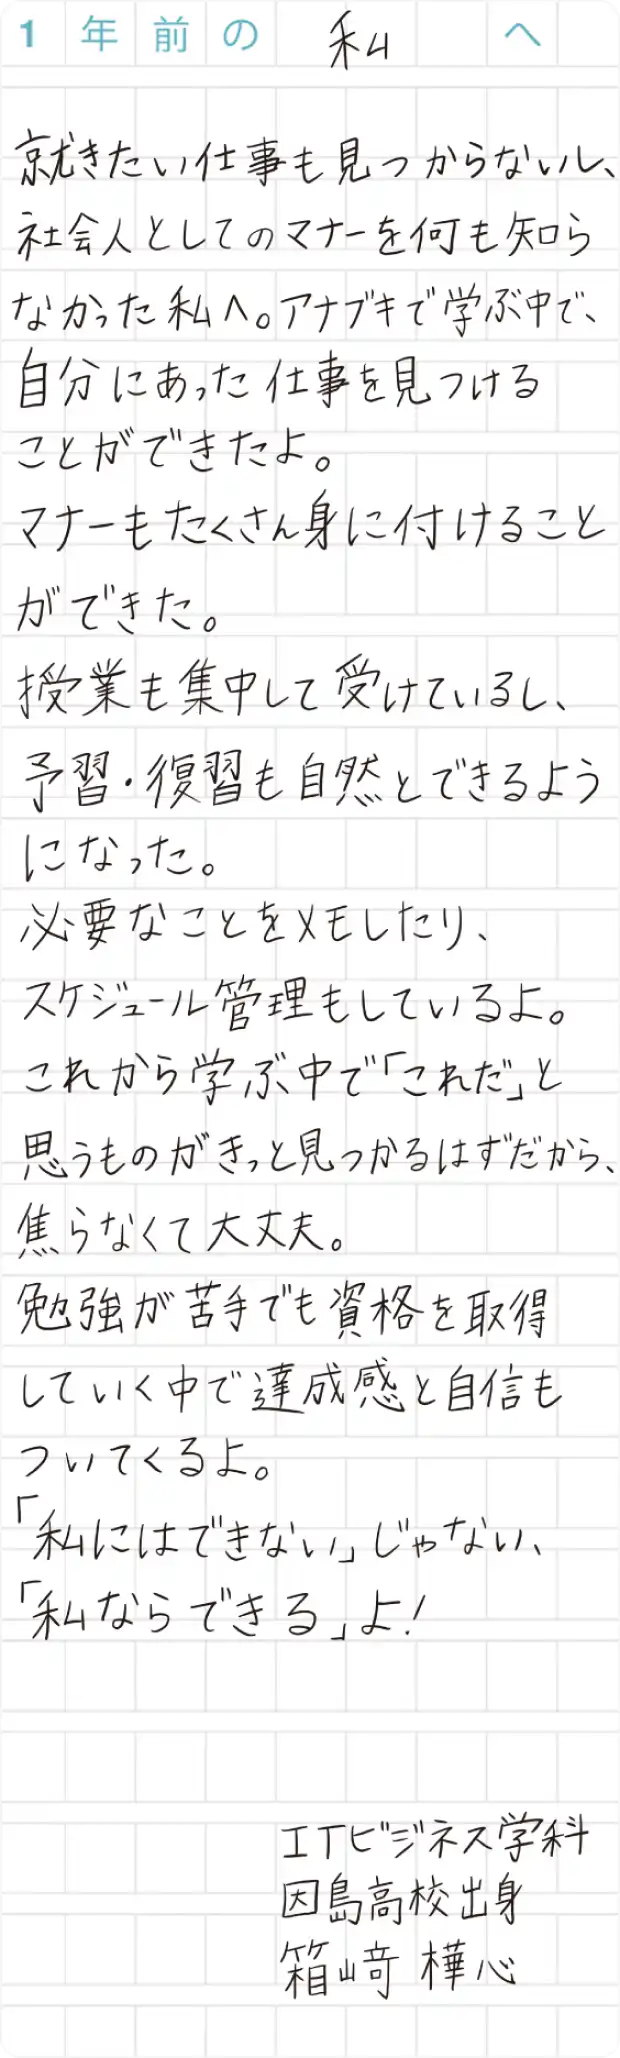 1年前の 私 へ
就きたい仕事も見つからないし、
社会人としてのマナーを何も知ら
なかった私へ。アナブキで学ぶ中で、
自分にあった仕事を見つける
ことができたよ。
マナーもたくさん身に付けること
ができた。
授業も集中して受けているし、
予習・復習も自然とできるよう
になった。
必要なことをメモしたり、
スケジュール管理もしているよ。
これから学ぶ中で「これだ」と
思うものがきっと見つかるはずだから、
焦らなくて大丈夫。
勉強が苦手でも資格を取得
していく中で達成感と自信も
ついてくるよ。
「私にはできない」じゃない、
「私ならできる」よ!
ITビジネス学科
因島高校出身
箱﨑 樺心